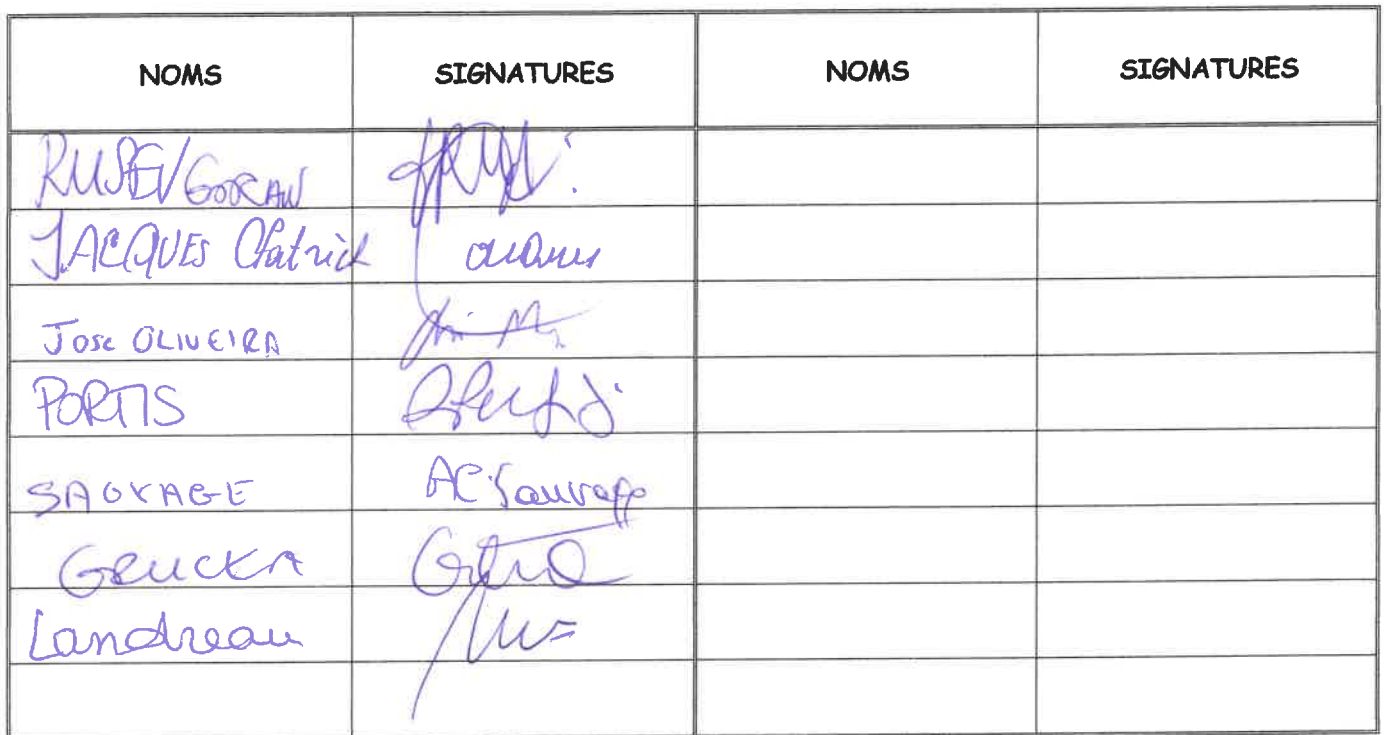 NOMS SIGNATURES NOMS SIGNATURES
RUSEV GORAN
JACQUES Patrick
Jose OLIVEIRA
PORTIS
SAUVAGE AC Sauvage
GRUCKA
Landreau